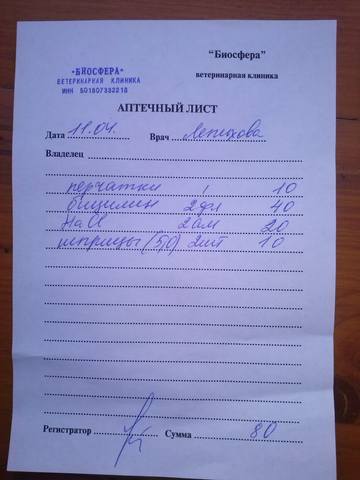 "БИОСФЕРА"
ВЕТЕРИНАРНАЯ КЛИНИКА
ИНН 501807332218
"Биосфера"
ветеринарная клиника
АПТЕЧНЫЙ ЛИСТ
Дата 11.04. Врач Лепихова
Владелец
перчатки 1 10
бицилин 2фл 40
NaCl 2ам 20
шприцы (5,0) 2шт 10
Регистратор Сумма 80